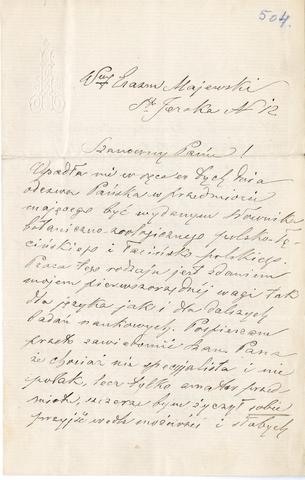 504.
Wny Erazm Majewski
Sto Jerska N 12
Szanowny Panie!
Wpadła mi w ręce w tych dnia
odezwa Pańska w przedmiocie
mającego być wydanym Słownika
botaniczno-zoologicznego polsko-ła
cińskiego i łacińsko-polskiego.
Praca tego rodzaju jest zdaniem
mojem pierwszorzędnéj wagi tak
dla języka jak i dla dalszych
badań naukowych. Pospieszam
przeto zawiadomić Szan. Pana
że chociaż nie specyjalista i nie
polak, lecz tylko amator przed
miotu, szczerze bym życzył sobie
przyjść wedle możności i słabych